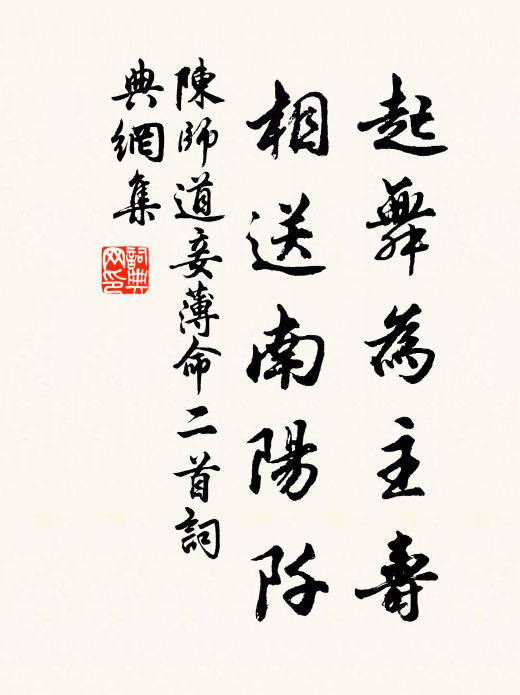 起舞為主壽
相送南陽阡
陳師道妾薄命二首詞
典網集
詞典
网印